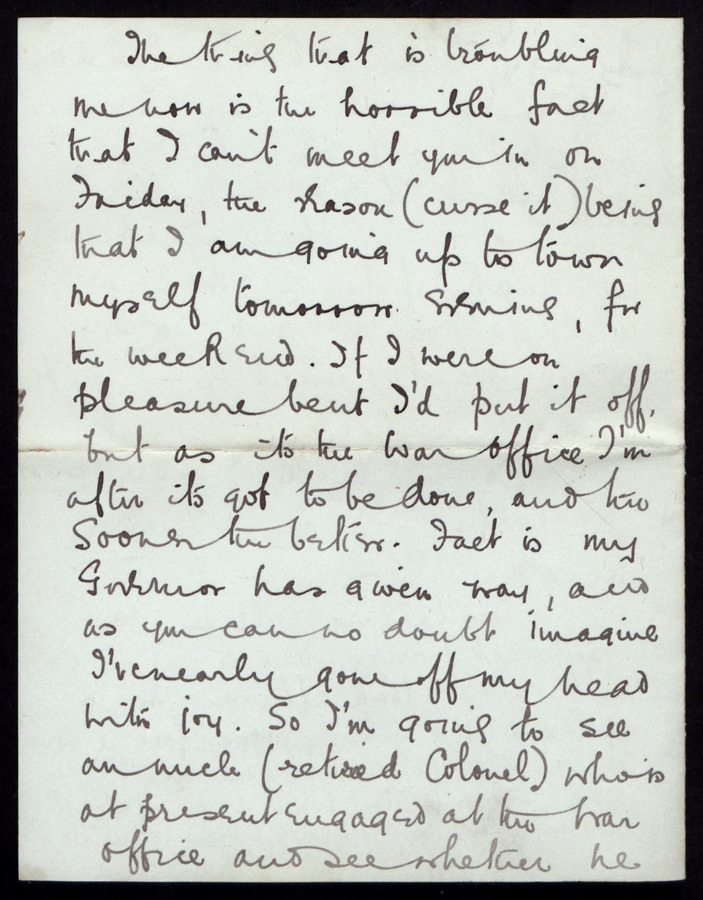 The thing that is troubling
me now is the horrible fact
that I can't meet you in on
Friday, the reason (curse it) being
that I am going up to town
myself tomorrow evening, for
the week end. If I were on
pleasure bent I'd put it off,
but as it's the War Office I'm
after it's got to be done, and the
sooner the better. Fact is my
Governor has given way, and
as you can no doubt imagine
I've nearly gone off my head
with joy. So I'm going to see
an uncle (retired Colonel) who is
at present engaged at the War
Office and see whether he